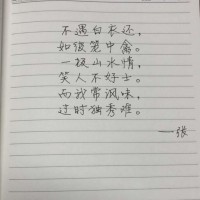 不遇白衣还，
如彼笼中禽。
一极山水情，
笑人不好士。
而我常风味，
过时独秀难。
一张